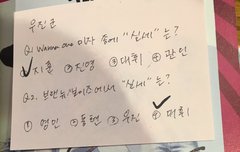 우진군
Q1. Wanna one 막내 중에 "실세"는?
✓지훈 ②진영 ③대휘 ④관린
Q2. 브랜뉴보이즈에서 "실세"는?
①영민 ②동현 ③우진 ④대휘